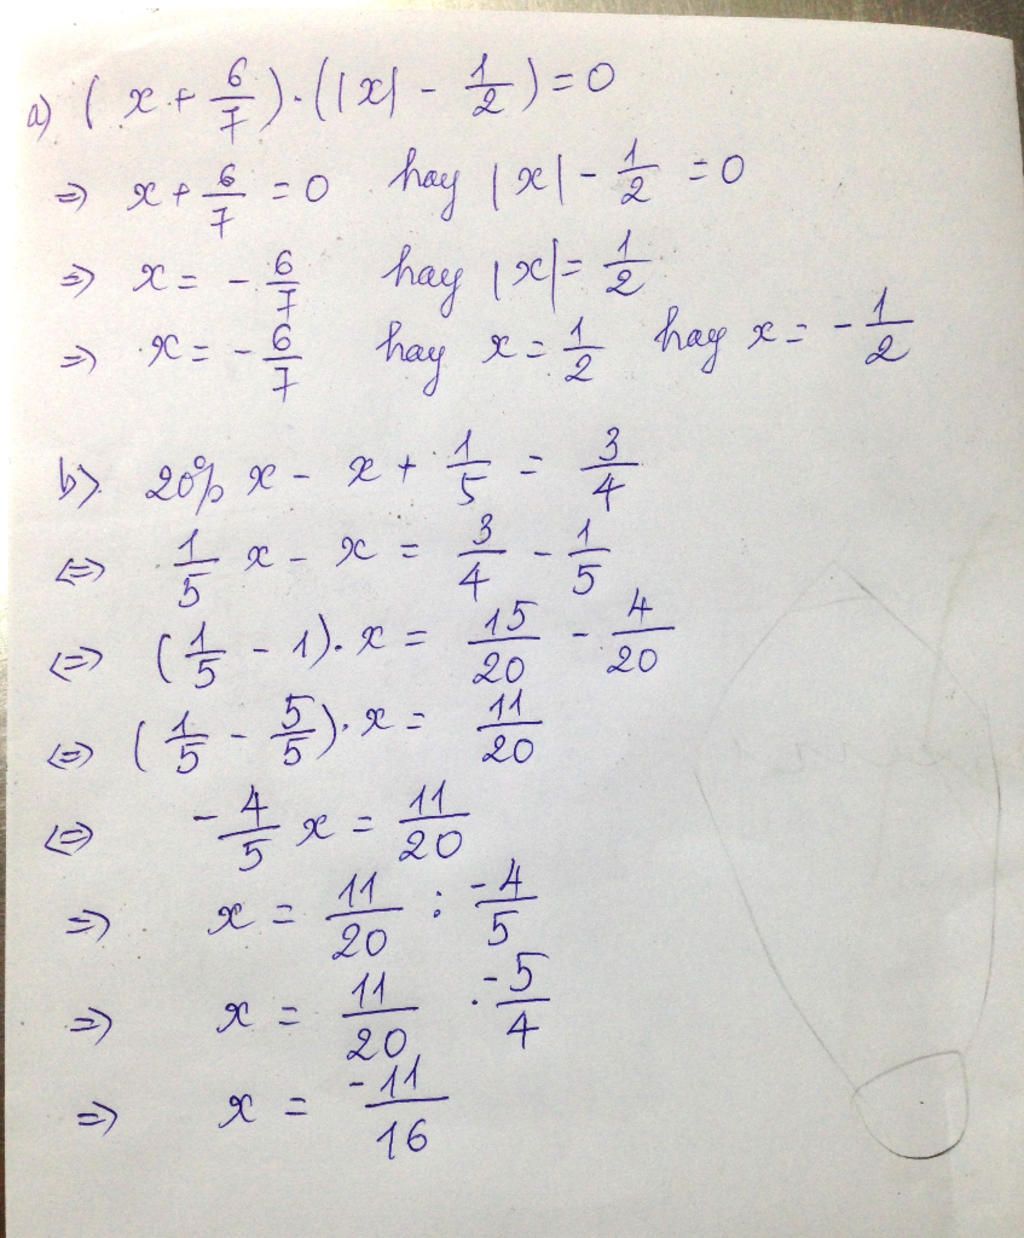 a) (x + 6/7).(|x| - 1/2) = 0
=> x + 6/7 = 0 hay |x| - 1/2 = 0
=> x = - 6/7 hay |x| = 1/2
=> x = - 6/7 hay x = 1/2 hay x = - 1/2
b) 20% x - x + 1/5 = 3/4
<=> 1/5 x - x = 3/4 - 1/5
<=> (1/5 - 1). x = 15/20 - 4/20
<=> (1/5 - 5/5). x = 11/20
<=> - 4/5 x = 11/20
=> x = 11/20 : -4/5
=> x = 11/20 . -5/4
=> x = -11/16